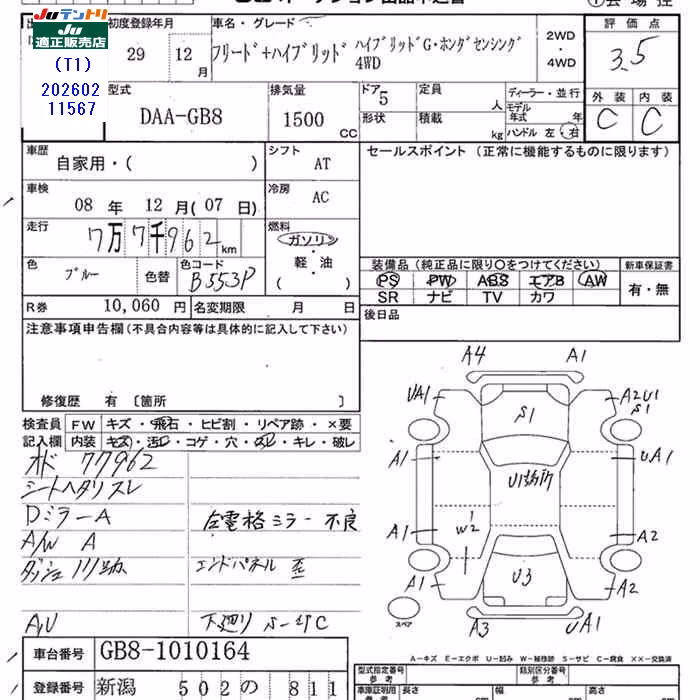 JUテントリ
JU適正販売店
(T1)
202602
11567
初度登録年月
29
12月
車名・グレード
フリード+ハイブリッド ハイブリッドG・ホンダセンシング
4WD
2WD
・
4WD
評価点
3.5
外装 内装
C C
型式
DAA-GB8
排気量
1500 CC
ドア
5
定員 人
形状 積載 kg
ディーラー・並行
モデル年式 年
ハンドル 左・右
車歴
自家用・( )
シフト
AT
セールスポイント(正常に機能するものに限ります)
車検
08年 12月(07日)
冷房
AC
走行
7万7千962km
燃料
ガソリン
軽・油
( )
色
ブルー
色替
色コード
B553P
装備品(純正品に限り○をつけてください)
新車保証書
PS PW ABS エアB AW
SR ナビ TV カワ
有・無
R券 10,060円
名変期限 月 日
後日品
注意事項申告欄(不具合内容等は具体的に記入して下さい)
修復歴 有 〔箇所 〕
検査員記入欄
FW キズ・飛石・ヒビ割・リペア跡・×要
内装 キズ・汚レ・コゲ・穴・スレ・キレ・破レ
77962
シートヘタリスレ
Dミラー A
左電格ミラー不良
A/W A
エンドパネル歪
A/U
A4 A1
UA1 A2U1
S1 S1
A1 UA1
W2
A1 A2
A1 A2
U3
A3 UA1
スペア
A-キズ E-エクボ U-凹み W-補修跡 S-サビ C-腐食 ××-交換済
車台番号 GB8-1010164
登録番号 新潟 502 の 811
型式指定番号
参考
類別区分番号
参考
長さ cm
幅 cm
高さ cm